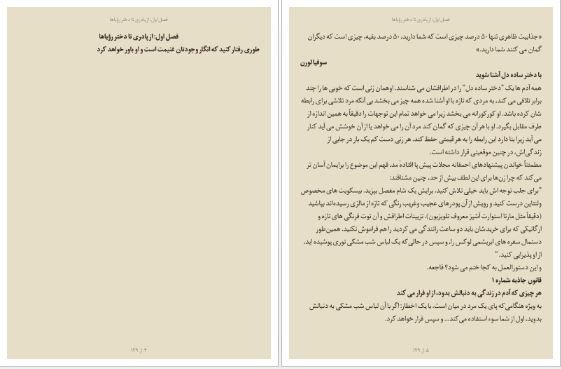 فصل اول: از پادری تا دختر رؤیاها
فصل اول: از پادری تا دختر رؤیاها
طوری رفتار کنید که انگار وجودتان غنیمت است و او باور خواهد کرد
فصل اول: از پادری تا دختر رؤیاها
«جذابیت ظاهری تنها ۵۰ درصد چیزی است که شما دارید، ۵۰ درصد بقیه، چیزی است که دیگران
گمان می کنند شما دارید.»
سوفیا لورن
با دختر ساده دل آشنا شوید
همه آدم ها یک "دختر ساده دل" را در اطرافشان می شناسند. او همان زنی است که خوبی ها را چند
برابر تلافی می کند، به مردی که تازه با او آشنا شده همه چیز می بخشد بی آنکه مرد تلاشی برای رابطه
شان کرده باشد. او کورکورانه می بخشد زیرا می خواهد تمام این توجهات را دقیقاً به همین اندازه از
طرف مقابل بگیرد. او با هر آن چیزی که گمان کند مرد آن را می خواهد یا از آن خوشش می آید کنار
می آید زیرا بنا دارد این رابطه را به هر قیمتی حفظ کند. هر زنی دست کم یک بار در جایی از
زندگی‌اش، در چنین موقعیتی قرار داشته است.
مطمئناً خواندن پیشنهادهای احمقانه مجلات پیش پا افتاده مد، فهم این موضوع را برایمان آسان تر
می کند که چرا زن‌ها برای این لطف بیش از حد، چنین مشتاقند:
"برای جلب توجه اش باید خیلی تلاش کنید. برایش یک شام مفصل بپزید. بیسکویت های مخصوص
ولنتاین درست کنید و رویش از آن پودرهای عجیب و غریب رنگی که تازه از مالزی رسیده‌اند بپاشید
(دقیقاً مثل مارتا استوارت آشپز معروف تلویزیون). تزیینات اطرافش و آن توت فرنگی های تازه و
ارگانیکی که برای خریدشان باید دو ساعت رانندگی می کردید را هم فراموش نکنید. همین‌طور
دستمال سفره های ابریشمی لوکس را، و سپس در حالی که یک لباس شب مشکی توری پوشیده اید،
از او پذیرایی کنید."
و این دستورالعمل به کجا ختم می شود؟ فاجعه.
قانون جاذبه شماره ۱
هر چیزی که آدم در زندگی به دنبالش بدود، از او فرار می کند
به ویژه هنگامی که پای یک مرد در میان است. با یک اخطار: اگر با آن لباس شب مشکی به دنبالش
بدوید، اول از شما سوء استفاده می کند... و سپس فرار خواهد کرد.